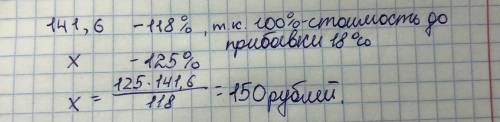 141,6 -118%, т.к. 100%-стоимость до
прибавки 18%
х -125%
х = 125·141,6 / 118 = 150 рублей.